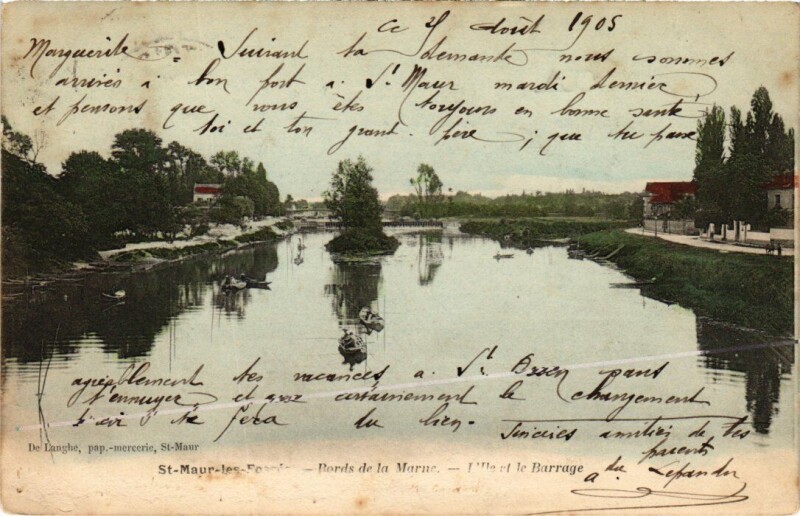 Ce 25 Août 1905
Marguerite - Suivant ta demande nous sommes
arrivés à bon port à St Maur mardi dernier
et pensons que vous êtes toujours en bonne santé
toi et ton grand père ; que tu passe
agréablement tes vacances a St sans
t'ennuyer et que certainement le changement
d'air te fera du bien.
Sincères amitiés de tes
parents
De Langhe, pap.-mercerie, St-Maur
St-Maur-les-Fossés — Bords de la Marne. — L'Ile et le Barrage